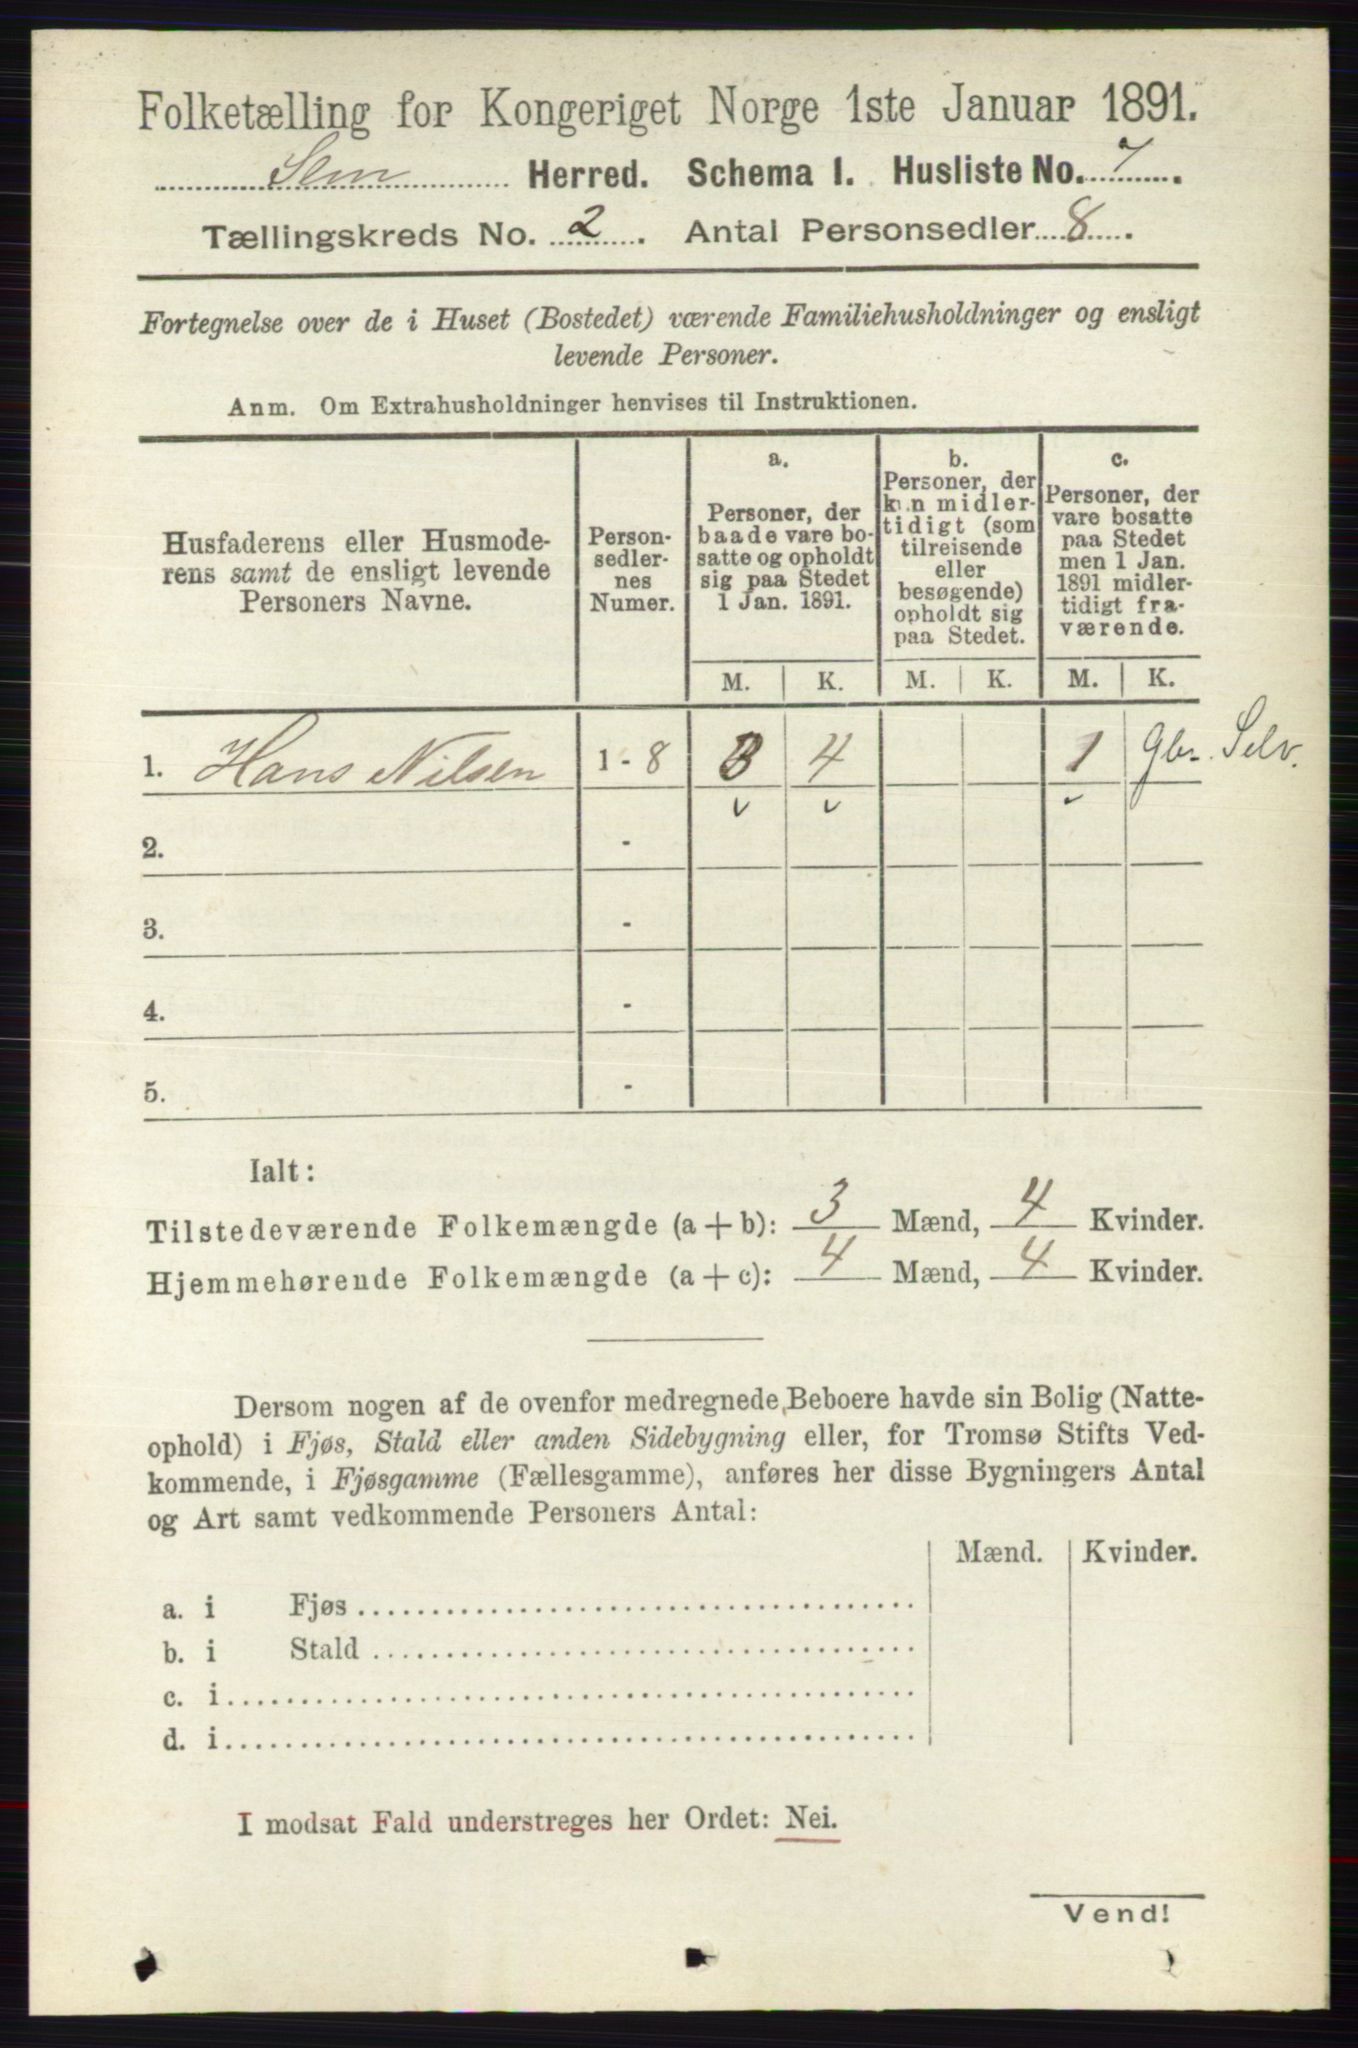 Folketælling for Kongeriget Norge 1ste Januar 1891.
Sem Herred. Schema I. Husliste No. 7.
Tællingskreds No. 2. Antal Personsedler 8.
Fortegnelse over de i Huset (Bostedet) værende Familiehusholdninger og ensligt
levende Personer.
Anm. Om Extrahusholdninger henvises til Instruktionen.
Husfaderens eller Husmode-
rens samt de ensligt levende
Personers Navne.
Person-
sedler-
nes
Numer.
a.
Personer, der
baade vare bo-
satte og opholdt
sig paa Stedet
1 Jan. 1891.
b.
Personer, der
kun midler-
tidigt (som
tilreisende
eller
besøgende)
opholdt sig
paa Stedet.
c.
Personer, der
vare bosatte
paa Stedet
men 1 Jan.
1891 midler-
tidigt fra-
værende.
M. K. M. K. M. K.
1. Hans Nilsen 1 - 8 3 4 1 Gbr. Selv.
2. -
3. -
4. -
5. -
Ialt:
Tilstedeværende Folkemængde (a + b): 3 Mænd, 4 Kvinder.
Hjemmehørende Folkemængde (a + c): 4 Mænd, 4 Kvinder.
Dersom nogen af de ovenfor medregnede Beboere havde sin Bolig (Natte-
ophold) i Fjøs, Stald eller anden Sidebygning eller, for Tromsø Stifts Ved-
kommende, i Fjøsgamme (Fællesgamme), anføres her disse Bygningers Antal
og Art samt vedkommende Personers Antal:
Mænd. Kvinder.
a. i Fjøs
b. i Stald
c. i
d. i
I modsat Fald understreges her Ordet: Nei.
Vend!